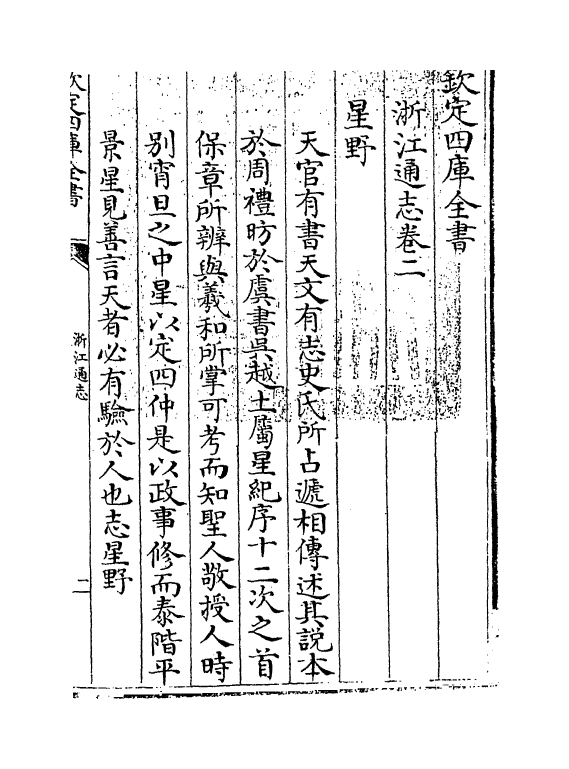 欽定四庫全書
浙江通志卷二
星野
天官有書天文有志史氏所占遞相傳述其說本
於周禮昉於虞書吳越土屬星紀序十二次之首
保章所辨與羲和所掌可考而知聖人敬授人時
別宵旦之中星以定四仲是以政事修而泰階平
景星見善言天者必有驗於人也志星野
欽定四庫全書
浙江通志
二